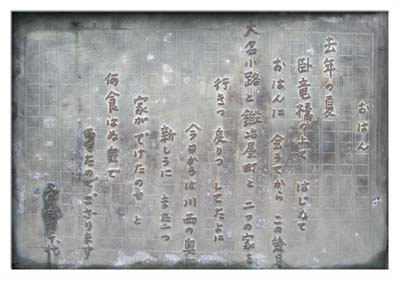 おはん
去年の夏
臥竜橋の上で はじめて
おはんに 会うてから この競
大名小路と鍛冶屋町と 二つの家を
行きつ 戻りつ してたよに
今日からは川西の奥に
新しうに また一つ
家がでけたのや と
何食はぬ 気で
ゐたのでござります
宇野千代